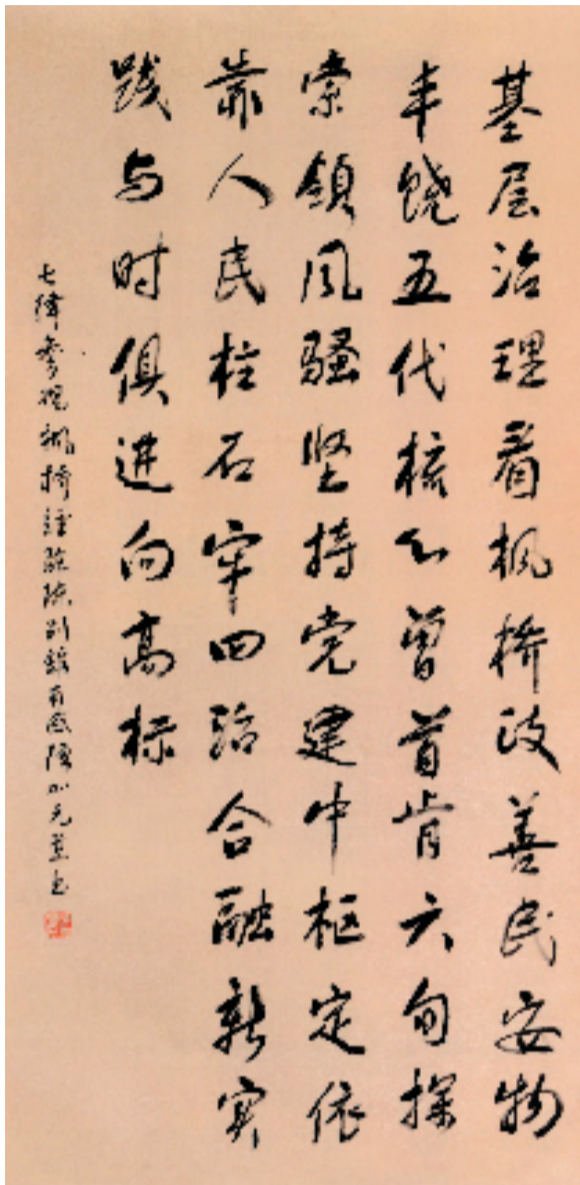 基层治理看枫桥政善民安物
丰饶五代核心曾首肯六旬探
索领风骚坚持党建中枢定依
靠人民柱石牢四治合融新实
践与时俱进向高标
七律参观枫桥经验陈列馆有感陈